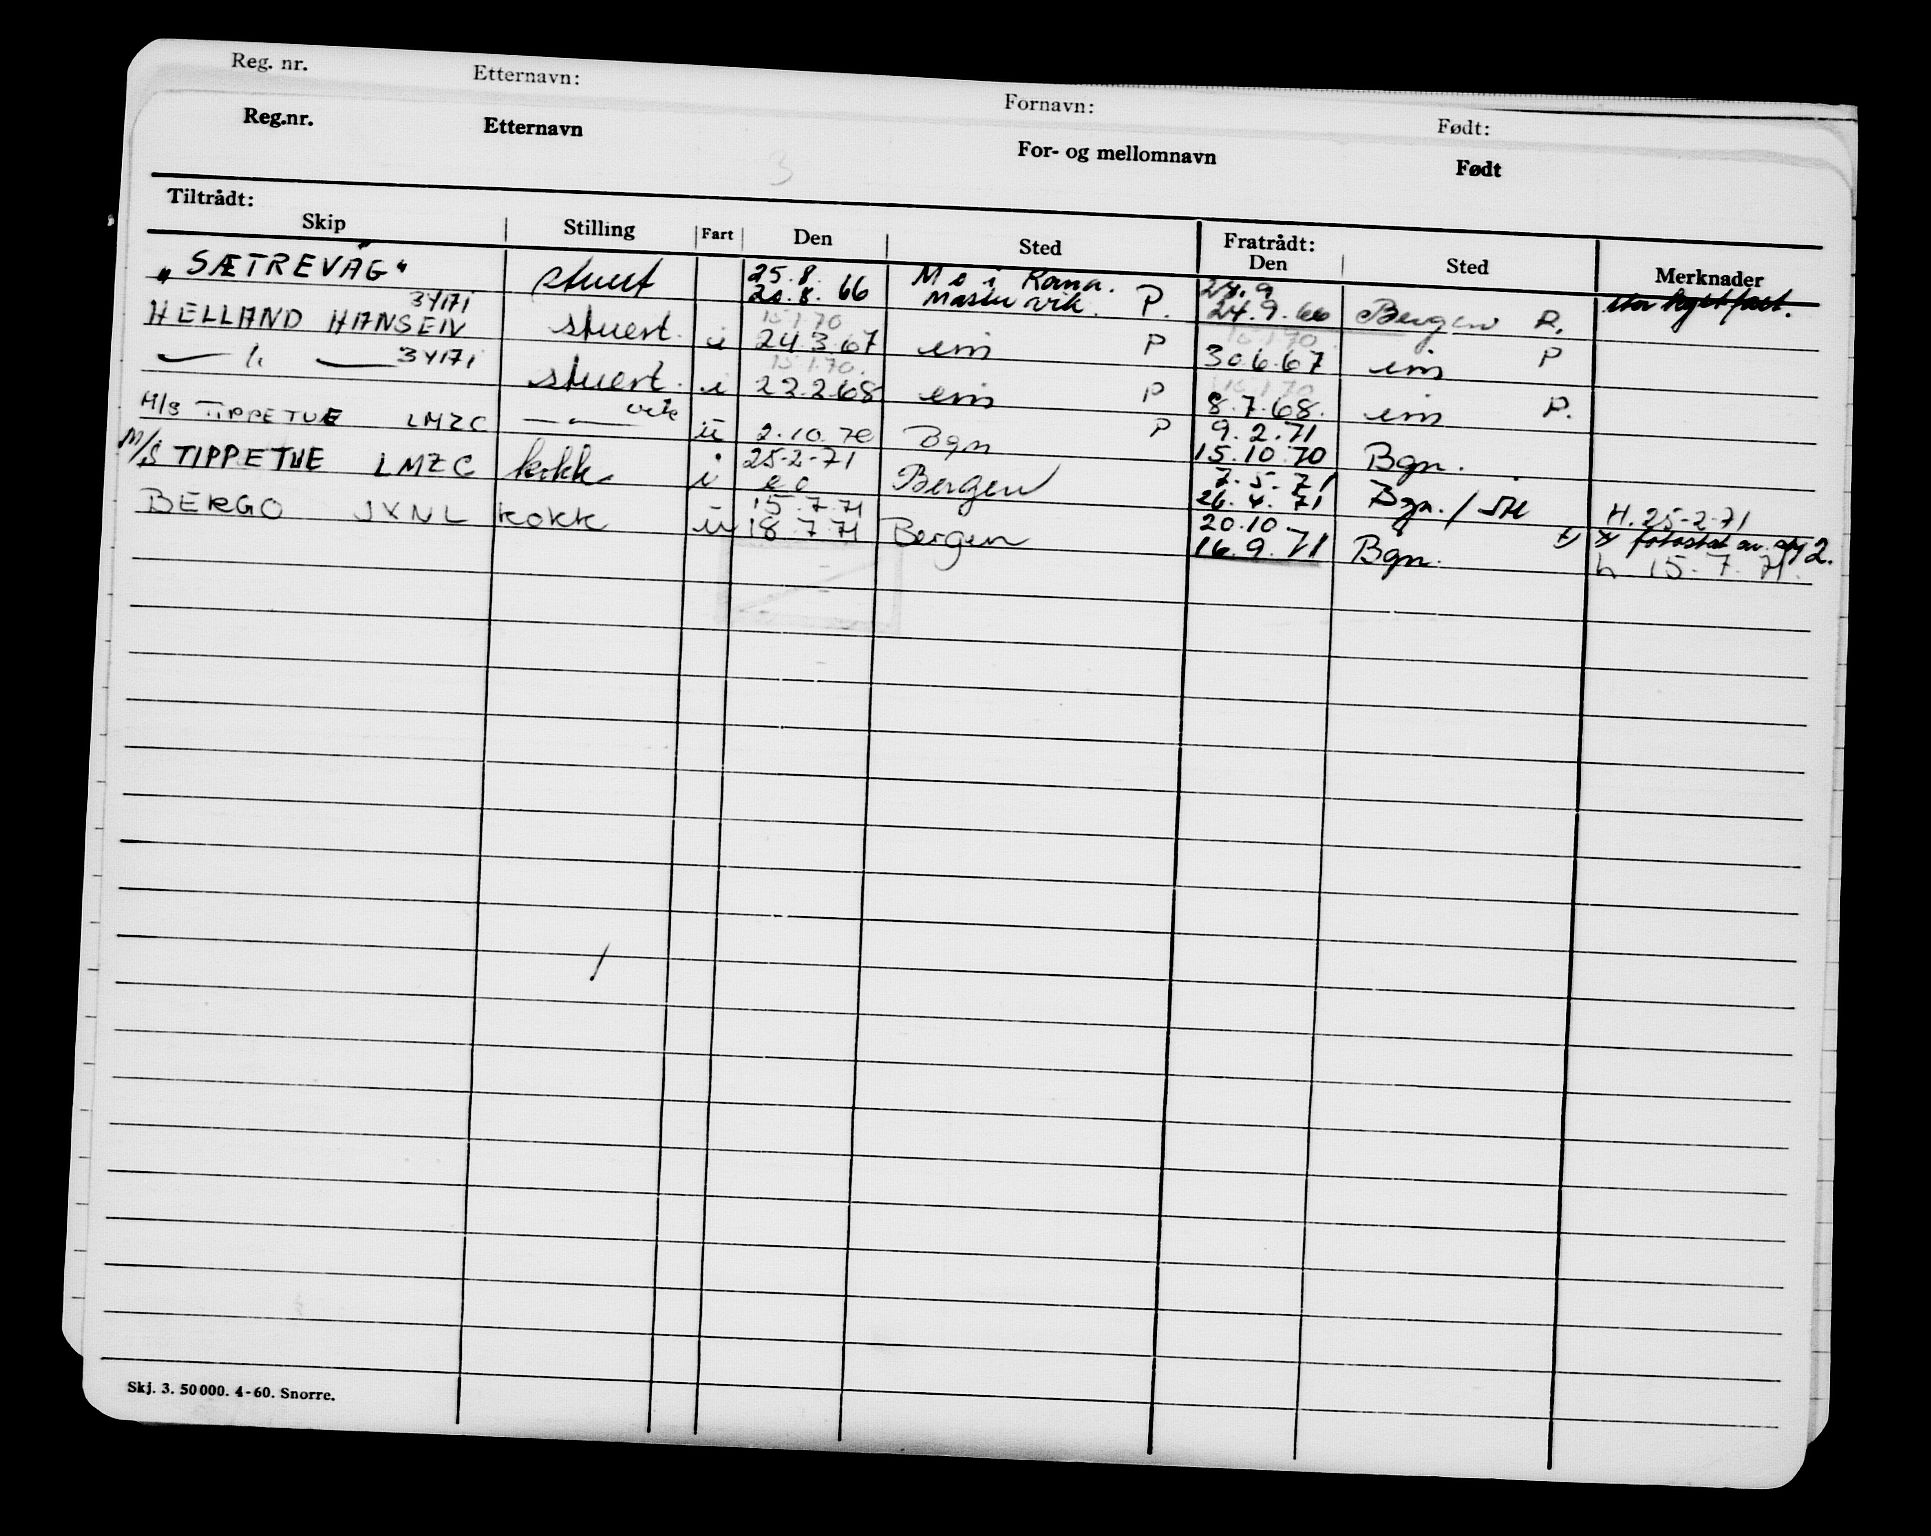 Reg. nr. Etternavn: Fornavn: Født:
Reg.nr. Etternavn For- og mellomnavn Født
3
Tiltrådt: Fratrådt:
Skip Stilling Fart Den Sted Den Sted Merknader
25.8. 24.9
„SÆTREVÅG" stuert 20.8. 66 Mastrevik. P. 24.9.66 Bergen P.
3YI71 15.1.70 15.1.70
HELLAND HANSEN stuert. i 24.3.67 em P 30.6.67 em P
3YI71 15.1.70. 15.1.70
— " — stuert. i 22.2.68 em P 8.7.68. em P.
9.2.71
M/S TIPPETUE LMZC — " — u 2.10.70 Bgn P 15.10.70 Bgn.
25-2-71 7.5.71
M/S TIPPETUE LMZC kokk i Bergen 26.4.71 Bgn. / H. 25-2-71
15.7.71 20.10.
BERGO JXNL kokk u 18.7.71 Bergen 16.9.71 Bgn. fotostat av 2.
h 15.7.71.
Skj. 3. 50000. 4-60. Snorre.